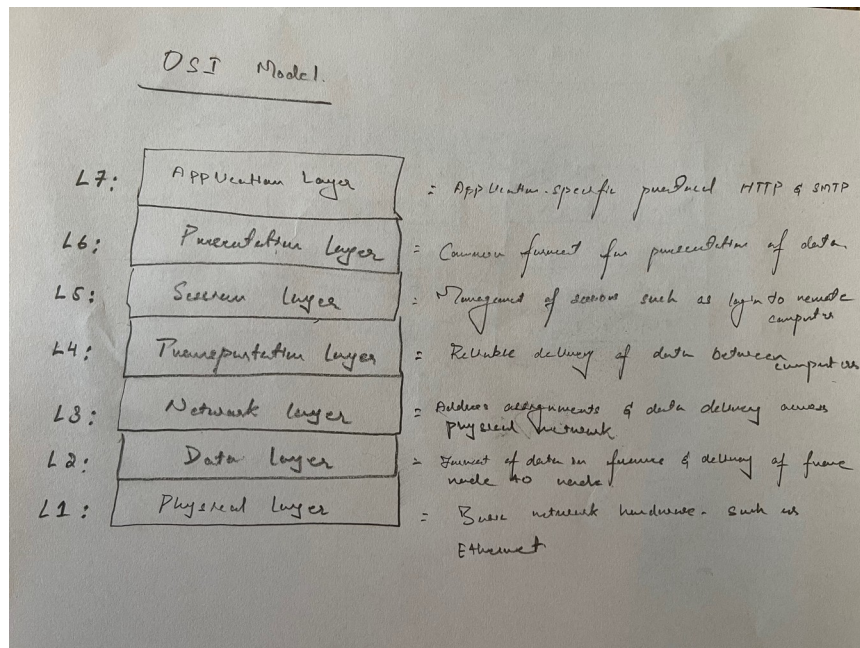 OSI Model.
L7: Application Layer = Application-specific protocol HTTP & SMTP
L6: Presentation Layer = Common format for presentation of data
L5: Session Layer = Management of sessions such as login to remote
computers
L4: Transportation Layer = Reliable delivery of data between
computers
L3: Network Layer = Address assignments & data delivery across
physical network.
L2: Data Layer = Format of data in frame & delivery of frame
node to node.
L1: Physical Layer = Basic network hardware. such as
Ethernet